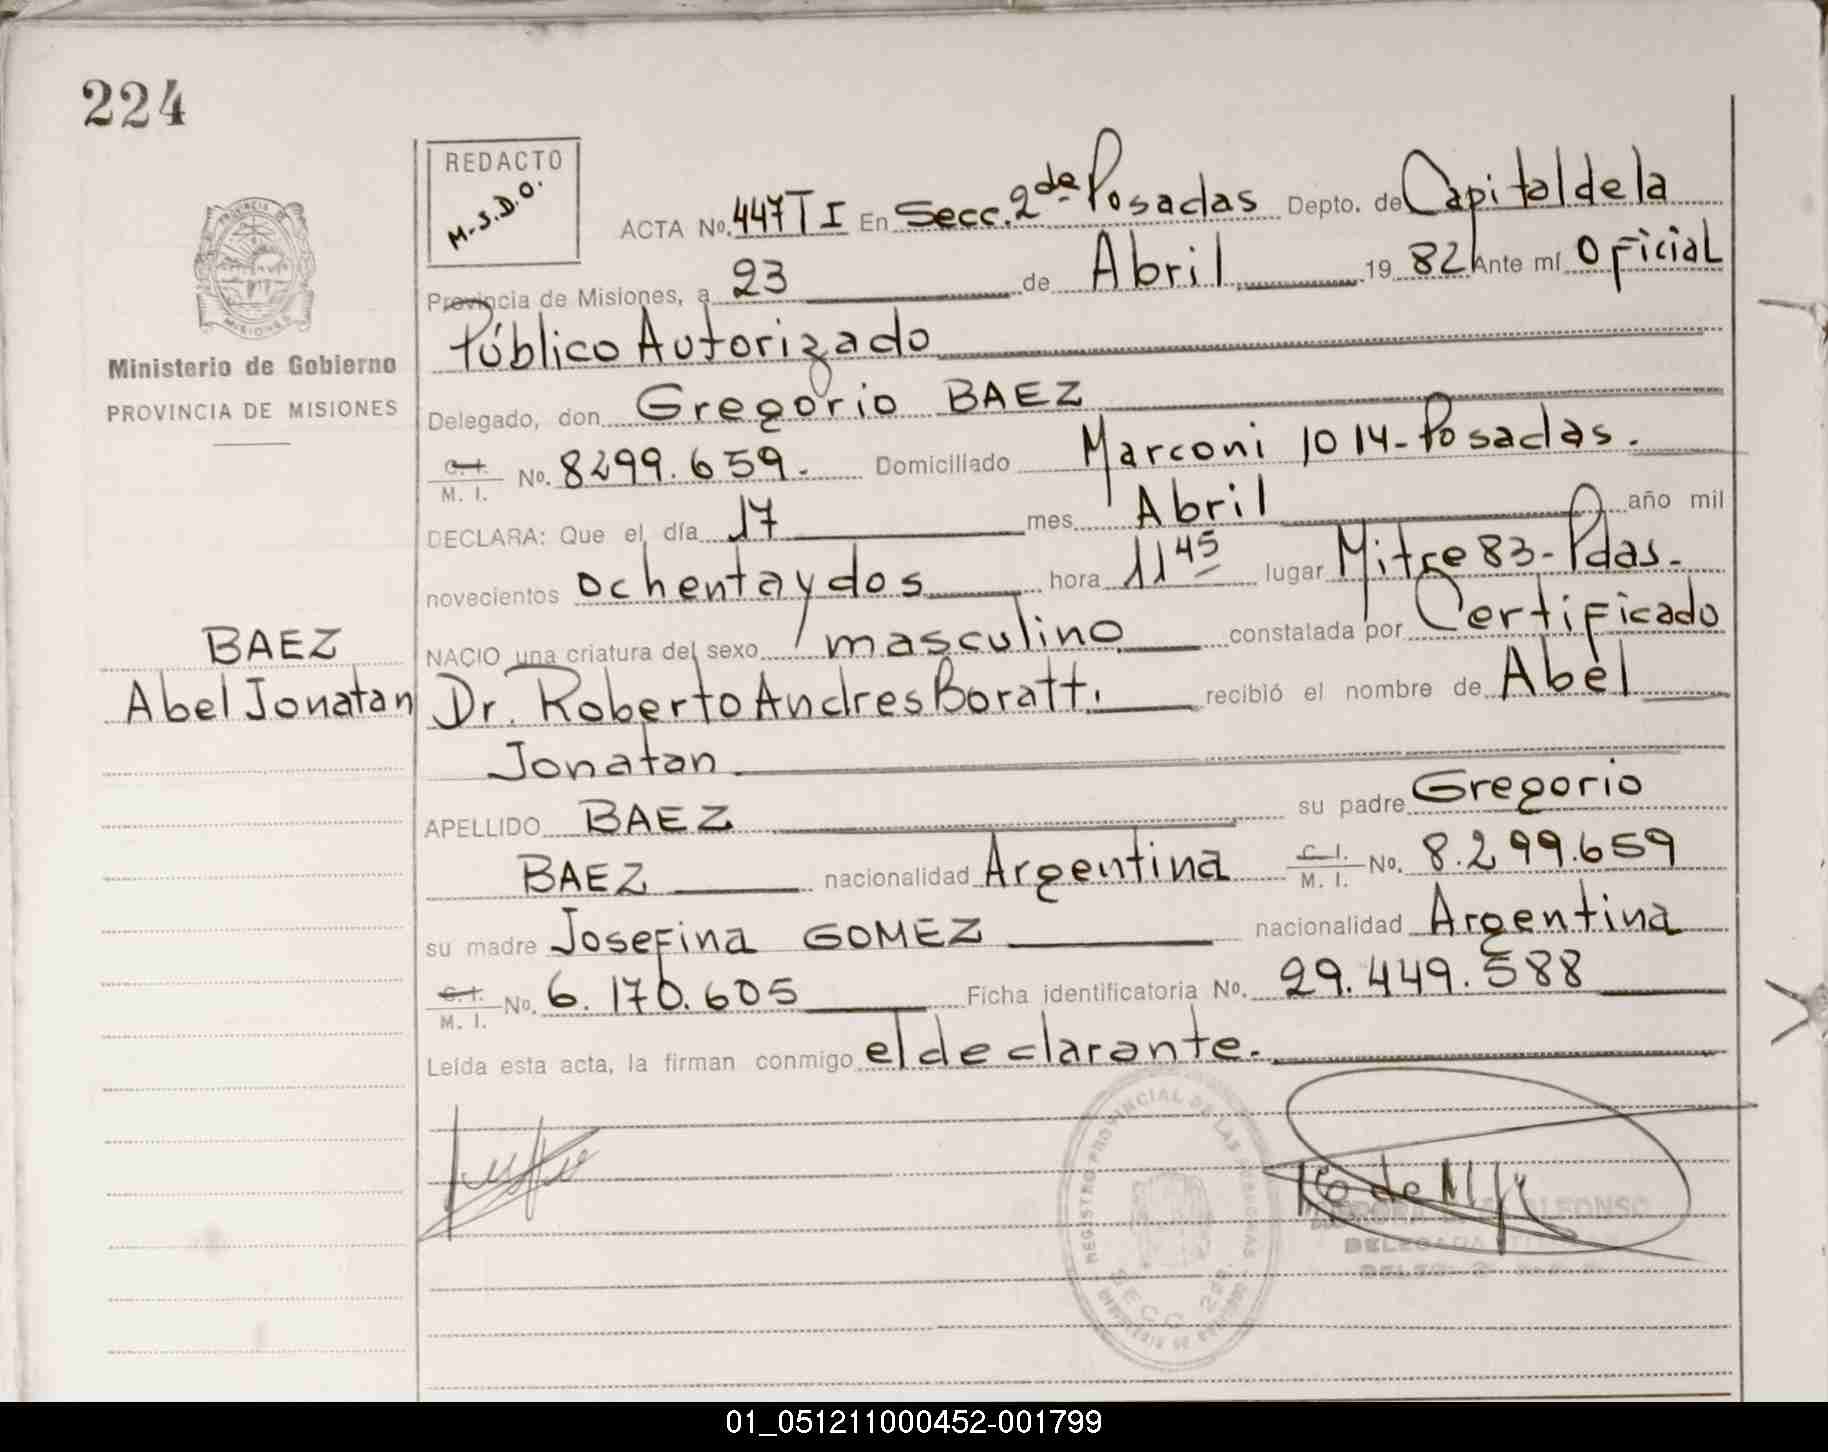 224
REDACTO
M.S.D.O.
ACTA No. 447 T I En Secc. 2da Posadas Depto. de Capital de la
Provincia de Misiones, a 23 de Abril 1982 Ante mí Oficial
Público Autorizado
Delegado, don Gregorio BAEZ
C.I. M. I. No. 8299.659. Domiciliado Marconi 1014-Posadas.
DECLARA: Que el día 17 mes Abril año mil
novecientos ochenta y dos hora 11 45 lugar Mitre 83-Pdas.
NACIO una criatura del sexo masculino constatada por Certificado
Dr. Roberto Andres Boratti recibió el nombre de Abel
Jonatan
APELLIDO BAEZ su padre Gregorio
BAEZ nacionalidad Argentina C.I. M. I. No. 8.299.659
su madre Josefina GOMEZ nacionalidad Argentina
C.I. M. I. No. 6.170.605 Ficha identificatoria No. 29.449.588
Leída esta acta, la firman conmigo el declarante.
Ministerio de Gobierno
PROVINCIA DE MISIONES
BAEZ
Abel Jonatan
PROVINCIA DE
MISIONES
REGISTRO PROVINCIAL DE LAS PERSONAS
SECC. 2da
DELEGADA
01_051211000452-001799